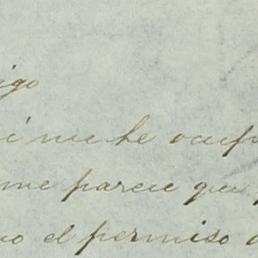 igo
i me he ocup
me parece que
no el permiso